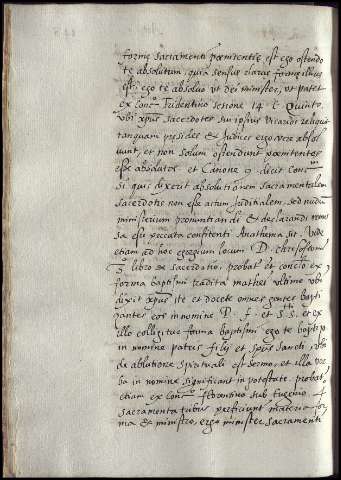 forme sacramenti pœnitentie est ego ostendo
te absolutum, quia sensus clarus forme illius
est: ego te absoluo ut dei minister, ut patet
ex conc.º Tridentino sesione 14 c. Quinto,
ubi xpus sacerdotes sui ipsius vicarios reliquit
tanquam presides et Judices ergo vere absol
uunt, et non solum ostendunt pœnitentes
esse absolutos. et Canone 9 dicit conc.
si quis dixerit absolutionem sacramentalem
sacerdotis non esse actum Juditialem, sed nudum
ministerium pronuntiandi et declarandi remis
sa esse peccata confitenti Anathema sit. Vide
etiam ad hoc egregium locum D. chrisostom
3 libro de sacerdotio. probat et ex
forma baptismi tradita mathei ultimo ubi
dixit xpus ite et docete omnes gentes bapti
zantes eos in nomine P. f. et S. S. et ex
illo colligitur forma baptismi ego te baptizo
in nomine patris filij et spus sancti.
de ablutione spirituali est sermo, et illa ver
ba in nomine significant in potestate. probat
etiam ex conc. florentino sub eugenio 4
sacramenta tribus perficiunt materia for
ma et ministro, ergo minister sacramenti